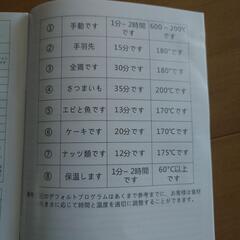 ① 手動です 1分~2時間です 600~200℃です
② 手羽先 15分です 180°です
③ 全鶏です 30分です 180°です
④ さつまいも 35分です 200℃です
⑤ エビと魚です 13分です 170℃です
⑥ ケーキです 20分です 170℃です
⑦ ナッツ類です 12分です 175℃です
⑧ 保温します 1分~2時間です 60°C以上です
デフォルトプログラムはあくまで参考までに、お客様は食材
に応じて時間と温度を適切に調整することができます。